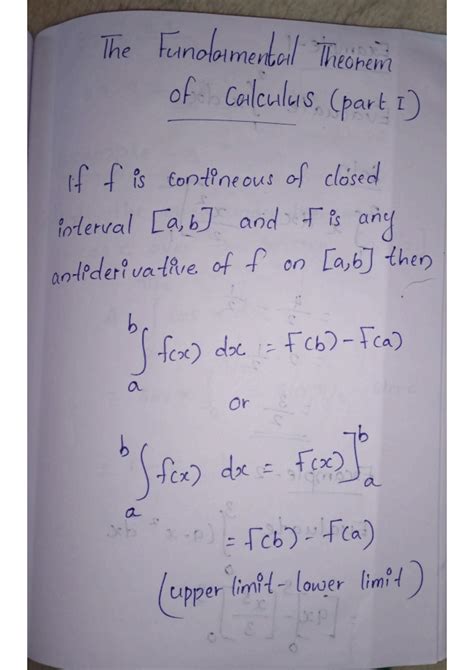 The Fundamental Theorem
of Calculus (part I)
If f is contineous of closed
interval [a,b] and F is any
antiderivative of f on [a,b] then
∫ₐᵇ f(x) dx = F(b) - F(a)
or
∫ₐᵇ f(x) dx = F(x)]ₐᵇ
= F(b) - F(a)
(upper limit - lower limit)